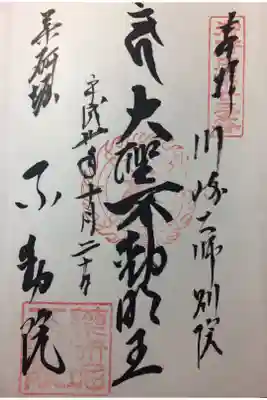 奉拝
川崎大師別院
大聖不動明王
平成 年十月二十 日
薬研堀
不動院